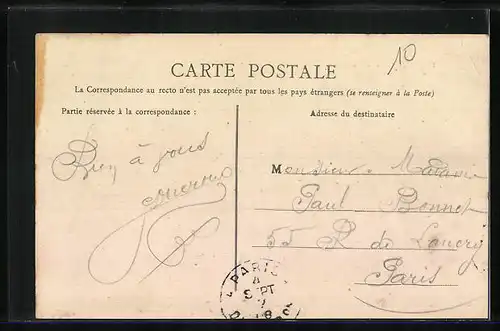 10
CARTE POSTALE
La Correspondance au recto n'est pas acceptée par tous les pays étrangers (se renseigner à la Poste)
Partie réservée à la correspondance :
Adresse du destinataire
Bien à vous
Monsieur Madame
Paul Bonnet
55 R de Lancry
Paris
PARIS
SEPT